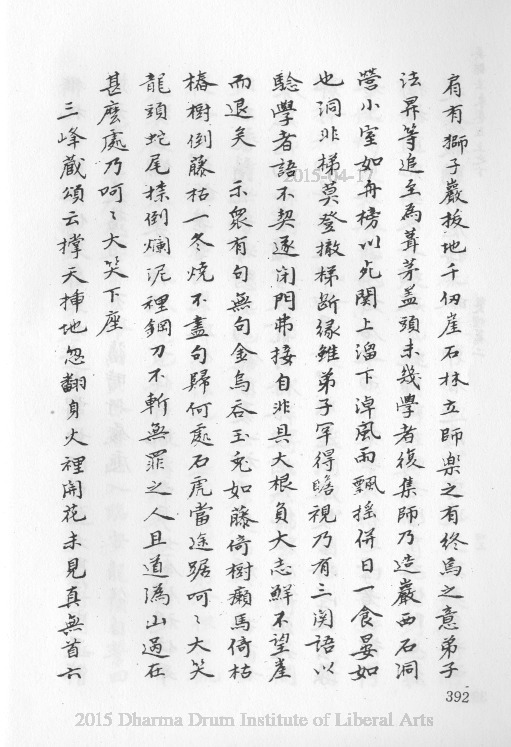 肩有獅子巖拔地千仞崖石林立師樂之有終焉之意弟子
法昇等追至為葺茅蓋頭未幾學者復集師乃造巖西石洞
營小室如舟榜以死関上溜下淖風雨飄搖併日一食晏如
也洞非梯莫登撤梯斷緣雖弟子罕得瞻視乃有三関語以
驗學者語不契遂闭門弗接自非具大根負大志鮮不望崖
而退矣 示眾有句無句金烏吞玉兔如藤倚樹癩馬倚枯
樁樹倒藤枯一冬燒不盡句歸何處石虎當途踞呵〻大笑
龍頭蛇尾搽倒爛泥裡鋼刀不斬無罪之人且道溈山過在
甚麼處乃呵〻大笑下座
三峰藏頌云撑天拄地忽翻身火裡開花未見真無首六
392
2015-04-17
2015 Dharma Drum Institute of Liberal Arts